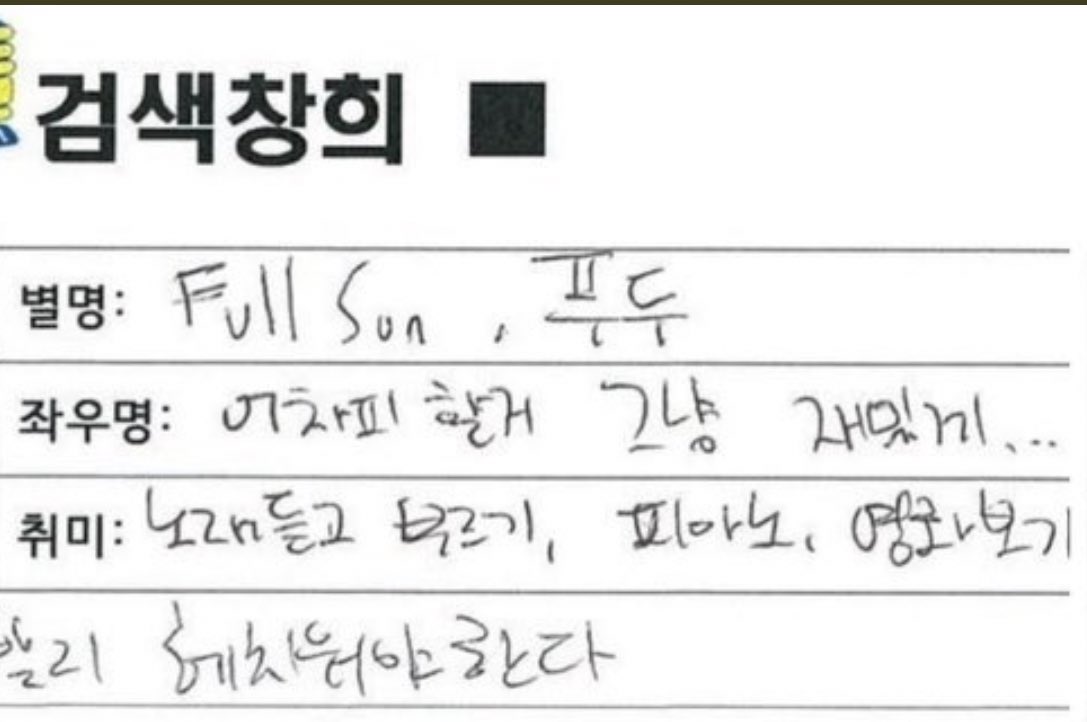 검색창희 ■
별명: Full Sun, 푸두
좌우명: 어차피 할거 그냥 재밌게...
취미: 노래듣고 부르기, 피아노, 영화보기
빨리 해치워야한다